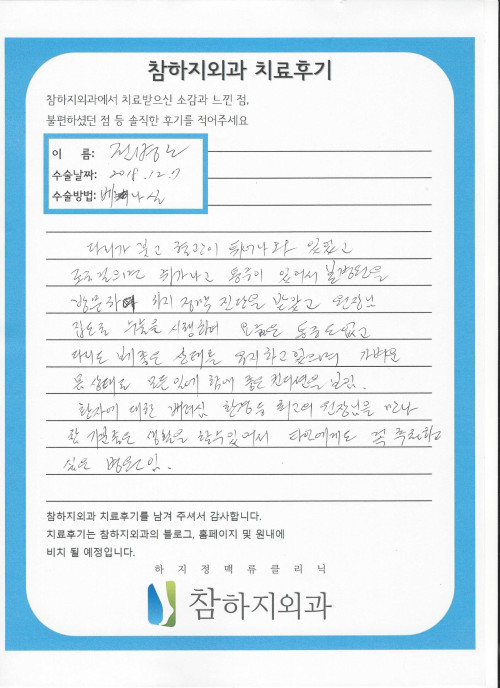 참하지외과 치료후기
참하지외과에서 치료받으신 소감과 느낀 점,
불편하셨던 점 등 솔직한 후기를 적어주세요
이 름: 전병노
수술날짜: 2018.12.7
수술방법: 베나실
다리가 붓고 혈관이 튀어나와 있었고
조금 걸으면 쥐가나고 통증이 있어서 본병원을
방문하여 하지 정맥 진단을 받았고 원장님
집도로 수술을 시행하여 오늘은 통증도 없고
다리도 좋은 상태를 유지하고 있으며 가벼운
몸 상태로 모든일에 임해 좋은 컨디션을 보임.
환자에 대한 배려심 환경등 최고의 원장님을 만나
기분좋은 생활을 할수있어서 타인에게도 꼭 추천하고
싶은 병원임.
참하지외과 치료후기를 남겨 주셔서 감사합니다.
치료후기는 참하지외과의 블로그, 홈페이지 및 원내에
비치 될 예정입니다.
하지정맥류클리닉
참하지외과